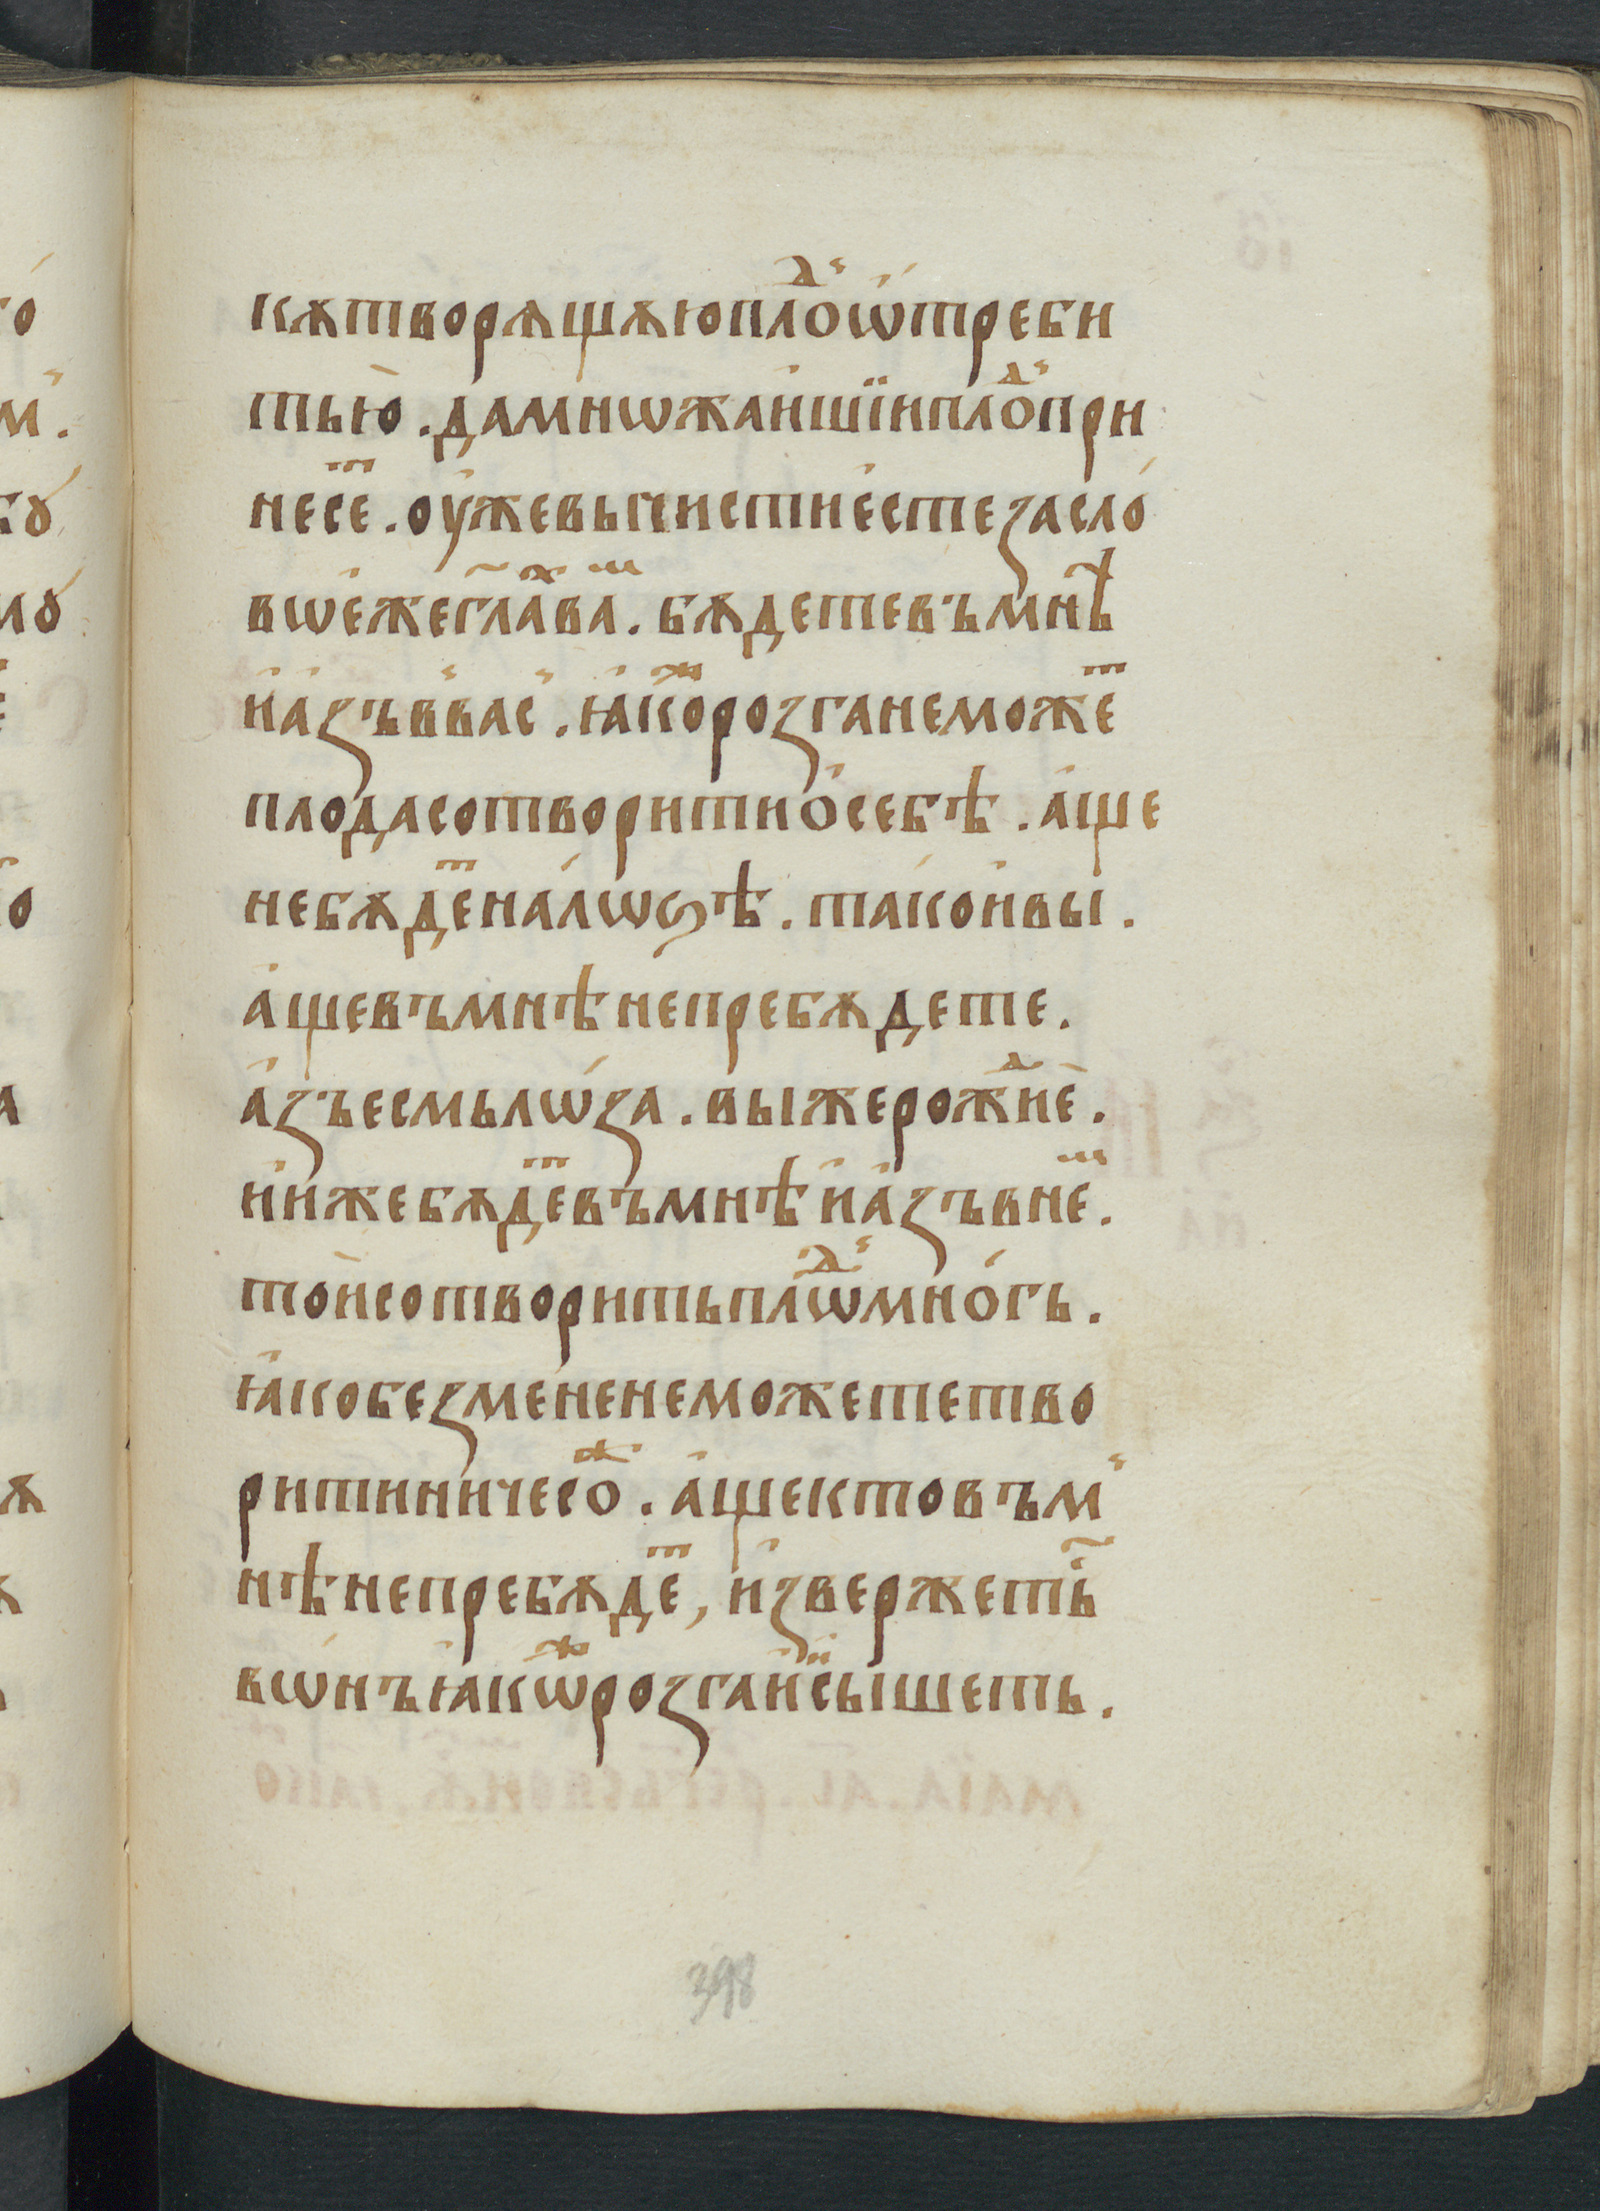 кѫтворѧщѫюпло́ⷣѡ́треби
тью̀.дамнѡжаи́шїиплоⷣпри
несеⷮ.оу҆жевычистиестезасло́
вѡе҆жеглⷯа҃вⷨа.бѫдетевъмнѣ
иа҆зъввас.ꙗ҆коⷤрозганеможеⷮ
плодасотворитиѻ҆себѣ.а҆ще
небѫдеⷮнало́ѕѣ.такои҆вы.
а҆щевъмнѣнепребѫдете.
а҆зъесмьлѡ́за.выжерожⷣне.
и҆ижебѫдеⷮвъмнѣиа҆зъвнеⷨ.
тои҆сотворитьплѡⷣмно́гь.
ꙗ҆кобезмененеможететво
ритиничесоⷤ.а҆щектовъм
нѣнепребѫдеⷮ,и҆звержетьⷭ
вѡ́нъꙗ҆кѡⷤрозгаи҆сышеть.
398